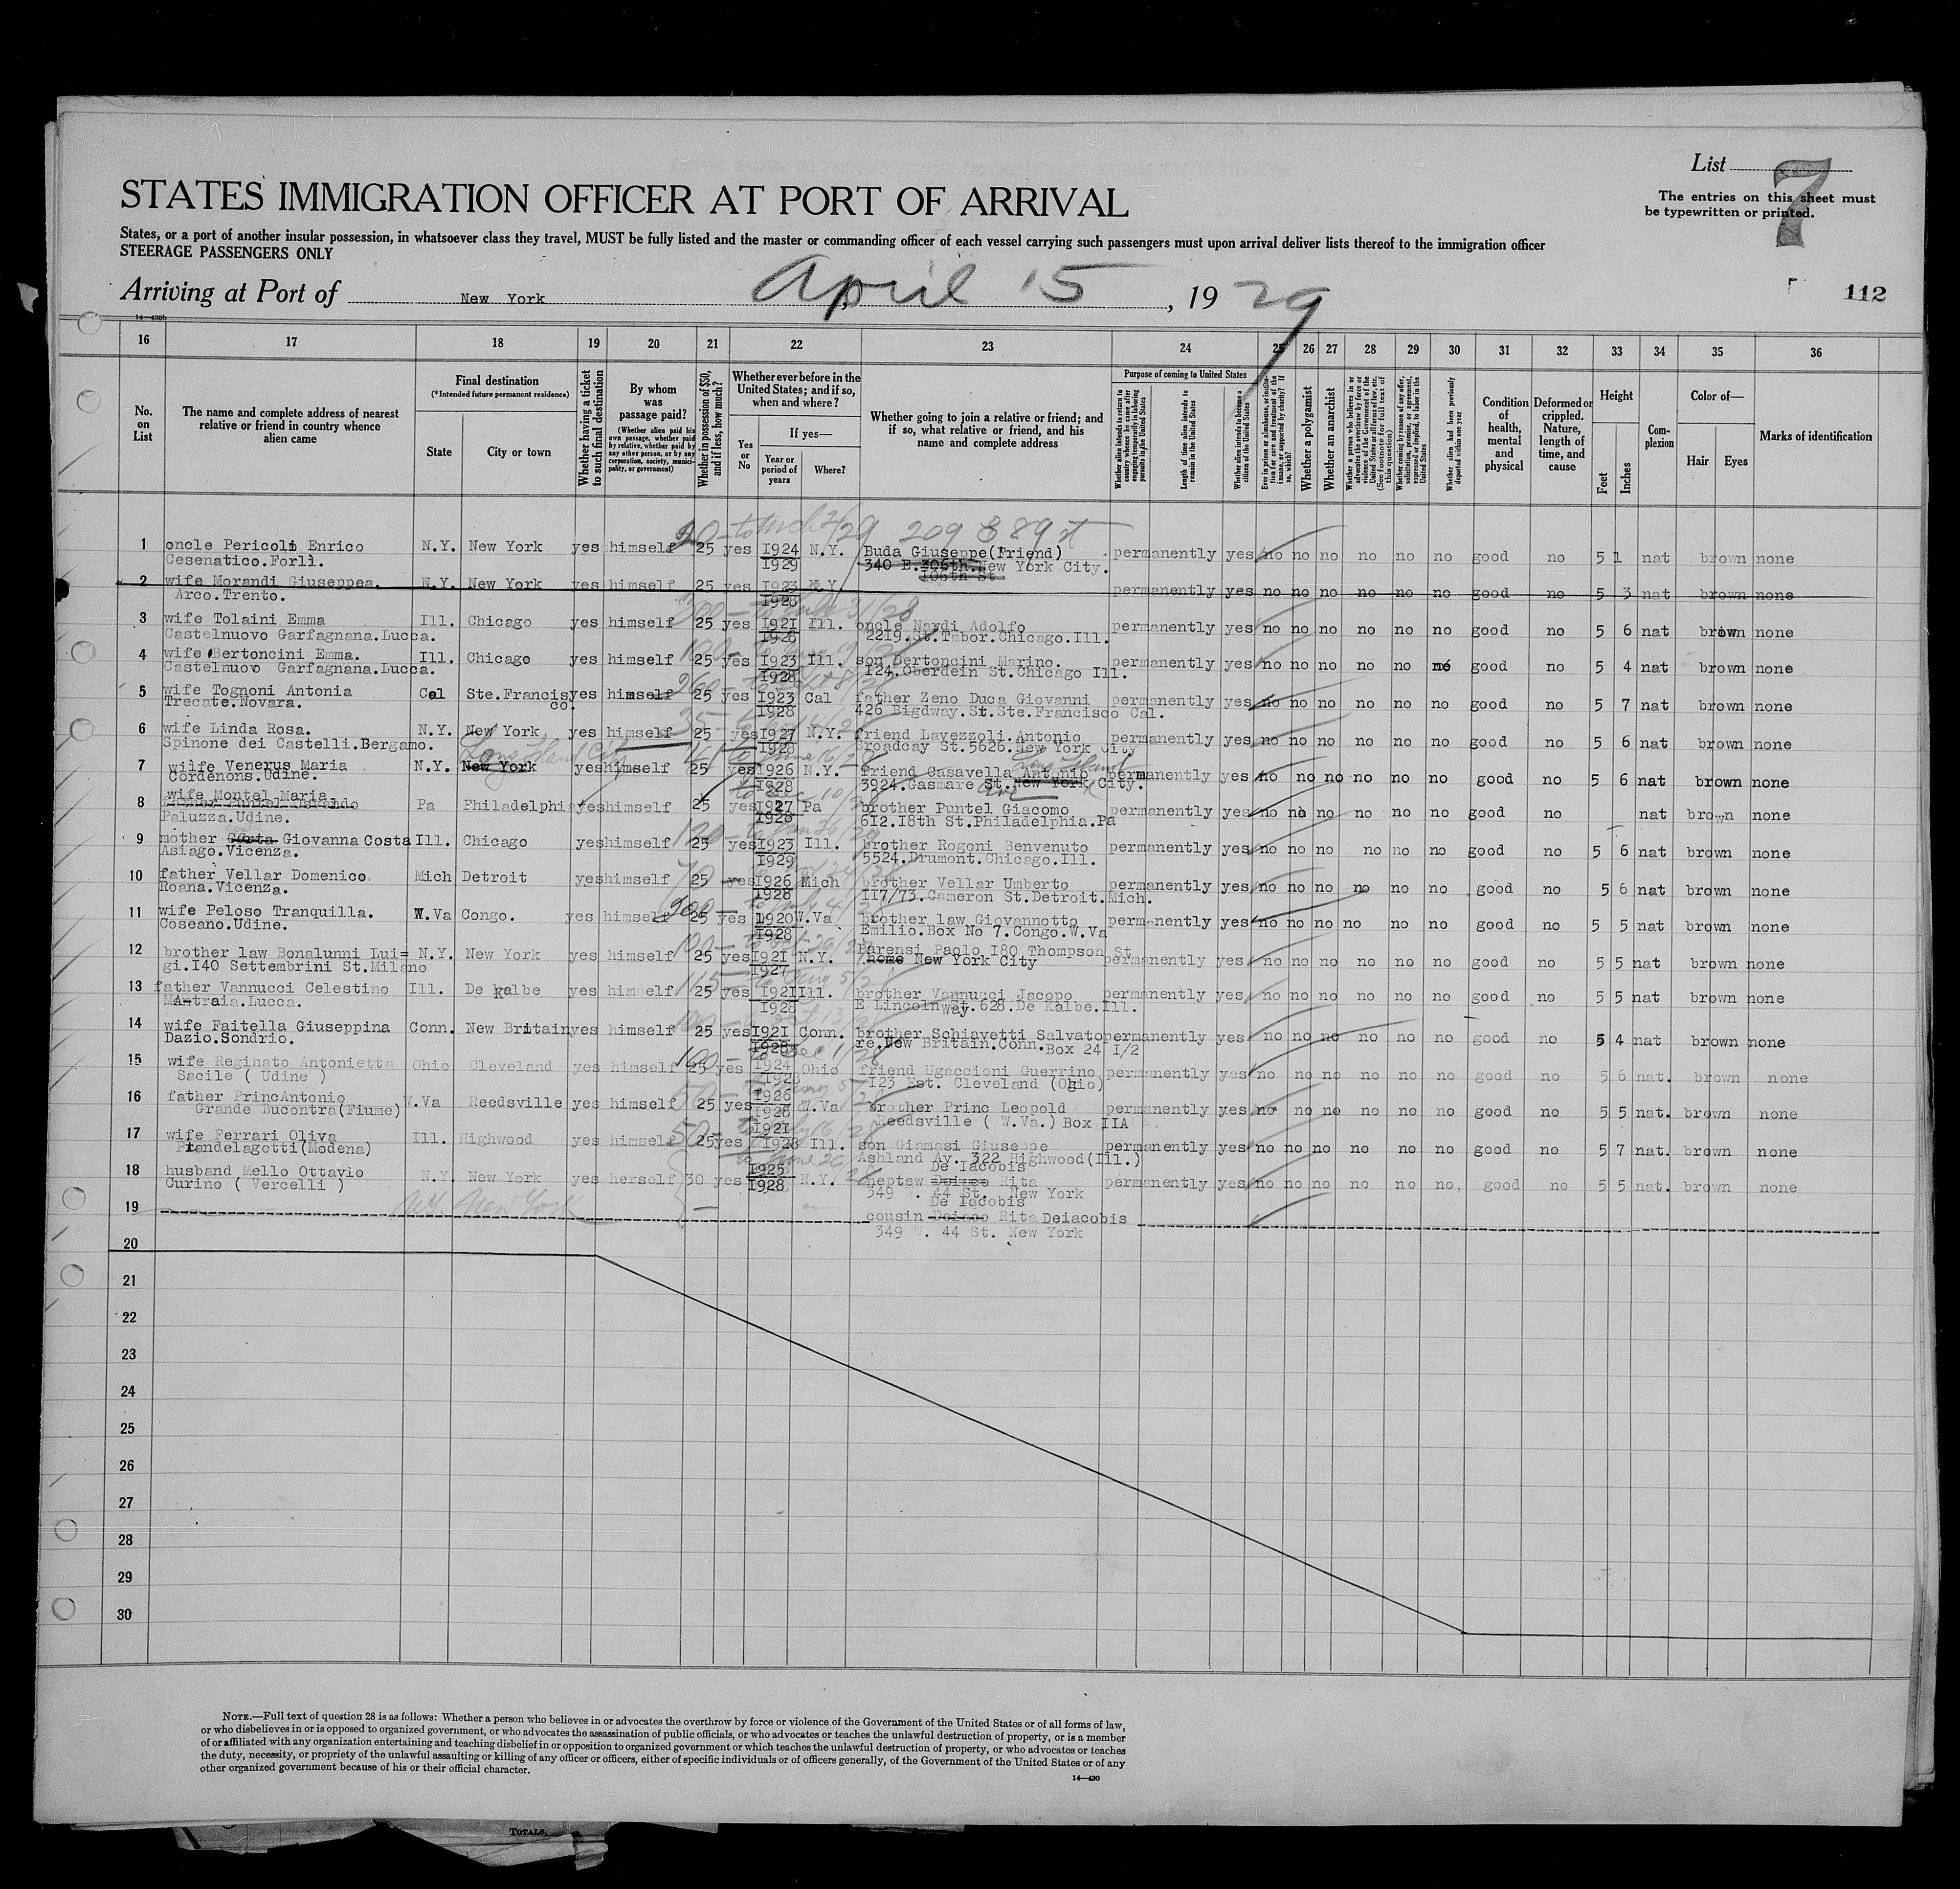 List 7
The entries on this sheet must
be typewritten or printed.
STATES IMMIGRATION OFFICER AT PORT OF ARRIVAL
States, or a port of another insular possession, in whatsoever class they travel, MUST be fully listed and the master or commanding officer of each vessel carrying such passengers must upon arrival deliver lists thereof to the immigration officer
STEERAGE PASSENGERS ONLY
Arriving at Port of New York April 15, 1929
112
14—430b
16 17 18 19 20 21 22 23 24 25 26 27 28 29 30 31 32 33 34 35 36
No. on List
The name and complete address of nearest relative or friend in country whence alien came
Final destination
(*Intended future permanent residence)
State
City or town
Whether having a ticket to such final destination
By whom was passage paid?
(Whether alien paid his own passage, whether paid by relative, whether paid by any other person, or by any corporation, society, municipality, or government)
Whether in possession of $50, and if less, how much?
Whether ever before in the United States; and if so, when and where?
Yes or No
If yes—
Year or period of years
Where?
Whether going to join a relative or friend; and if so, what relative or friend, and his name and complete address
Purpose of coming to United States
Whether alien intends to return to country whence he came after engaging temporarily in laboring pursuits in the United States
Length of time alien intends to remain in the United States
Whether alien intends to become a citizen of the United States
Whether a polygamist
Whether an anarchist
Whether alien had been previously deported within one year
Condition of health, mental and physical
Deformed or crippled. Nature, length of time, and cause
Height
Feet
Inches
Complexion
Color of—
Hair
Eyes
Marks of identification
209 E 89 st
1 oncle Pericoli Enrico N.Y. New York yes himself 25 yes 1924 N.Y. Buda Giuseppe(Friend) permanently yes no no no no no no good no 5 1 nat brown none
Cesenatico.Forlì. 1929 340 E. New York City.
106th St
2 wife Morandi Giuseppea. N.Y. New York yes himself 25 yes 1923 N.Y. permanently yes no no no no no no good no 5 3 nat brown none
Arco.Trento. 1928
3 wife Tolaini Emma Ill. Chicago yes himself 25 yes 1921 Ill. oncle Nardi Adolfo permanently yes no no no no no no good no 5 6 nat brown none
Castelnuovo Garfagnana.Lucca. 1928 2219.St.Tabor.Chicago.Ill.
4 wife Bertoncini Emma. Ill. Chicago yes himself 25 yes 1923 Ill. son Bertoncini Marino. permanently yes no no no no no no good no 5 4 nat brown none
Castelnuovo Garfagnana.Lucca. 1928 124.Oberdein St.Chicago Ill.
5 wife Tognoni Antonia Cal Ste.Francis yes himself 25 yes 1923 Cal father Zeno Duca Giovanni permanently yes no no no no no no good no 5 7 nat brown none
Trecate.Novara. co. 1928 426 Bigdway.St.Ste.Francisco Cal.
6 wife Linda Rosa. N.Y. New York yes himself 25 yes 1927 N.Y. friend Lavezzoli Antonio permanently yes no no no no no no good no 5 6 nat brown none
Spinone dei Castelli.Bergamo. 1928 Broadcay St.5626.New York City
Long Island City Long Island
7 wilfe Venerus Maria N.Y. New York yes himself 25 yes 1926 N.Y. friend Casavella Antonio permanently yes no no no no no no good no 5 6 nat brown none
Cordenons.Udine. 1928 3924.Gasmare St.New York City.
Ave
wife Montel Maria.
8 Pa Philadelphia yes himself 25 yes 1927 Pa brother Puntel Giacomo permanently yes no no no no no no good no nat brown none
Paluzza.Udine. 1928 612.18th St.Philadelphia.Pa
9 mother Costa Giovanna Costa Ill. Chicago yes himself 25 yes 1923 Ill. brother Rogoni Benvenuto permanently yes no no no no no no good no 5 6 nat brown none
Asiago.Vicenza. 1929 5524.Drumont.Chicago.Ill.
10 father Vellar Domenico Mich Detroit yes himself 25 yes 1926 Mich brother Vellar Umberto permanently yes no no no no no no good no 5 6 nat brown none
Roana.Vicenza. 1928 117/73.Cameron St.Detroit.Mich.
11 wife Peloso Tranquilla. W.Va Congo. yes himself 25 yes 1920 W.Va brother law Giovannotto permanently yes no no no no no no good no 5 5 nat brown none
Coseano.Udine. 1928 Emilio.Box No 7.Congo.W.Va
12 brother law Bonalunni Lui= N.Y. New York yes himself 25 yes 1921 N.Y. Parensi Paolo 180 Thompson St permanently yes no no no no no no good no 5 5 nat brown none
gi.140 Settembrini St.Milano 1927 home New York City
13 father Vannucci Celestino Ill. De Kalbe yes himself 25 yes 1921 Ill. brother Vannucci Jacopo permanently yes no no no no no no good no 5 5 nat brown none
Mantraia.Lucca. 1928 E Lincoln Way.628.De Kalbe.Ill.
14 wife Faitella Giuseppina Conn. New Britain yes himself 25 yes 1921 Conn. brother Schiavetti Salvato permanently yes no no no no no no good no 5 4 nat brown none
Dazio.Sondrio. 1928 re.New Britain.Conn.Box 24 1/2
15 wife Reginato Antonietta Ohio Cleveland yes himself 25 yes 1924 Ohio friend Ugaccioni Guerrino permanently yes no no no no no no good no 5 6 nat. brown none
Sacile ( Udine ) 1928 123 Est. Cleveland (Ohio)
16 father PrincAntonio W.Va Reedsville yes himself 25 yes 1926 W.Va brother Princ Leopold permanently yes no no no no no no good no 5 5 nat. brown none
Grande Bucontra(Fiume) 1928 Reedsville ( W.Va.) Box IIA
17 wife Ferrari Oliva Ill. Highwood yes himself 25 yes 1921 Ill. son Giamasi Giuseppe permanently yes no no no no no no good no 5 7 nat. brown none
Piandelagotti(Modena) 1928 Ashland Av. 322 Highwood(Ill.)
De Iacobis
18 husband Mello Ottavio N.Y. New York yes herself 30 yes 1925 N.Y. neptew Rita permanently yes no no no no no no, good no 5 5 nat. brown none
Curino ( Vercelli ) 1928 349 W. 44 St. New York
De Iacobis
19 N.Y. New York cousin Rita Deiacobis
349 W. 44 St. New York
20
21
22
23
24
25
26
27
28
29
30
NOTE.—Full text of question 28 is as follows: Whether a person who believes in or advocates the overthrow by force or violence of the Government of the United States or of all forms of law,
or who disbelieves in or is opposed to organized government, or who advocates the assassination of public officials, or who advocates or teaches the unlawful destruction of property, or is a member
of or affiliated with any organization entertaining and teaching disbelief in or opposition to organized government or which teaches the unlawful destruction of property, or who advocates or teaches
the duty, necessity, or propriety of the unlawful assaulting or killing of any officer or officers, either of specific individuals or of officers generally, of the Government of the United States or of any
other organized government because of his or their official character.
14—430
TOTALS.